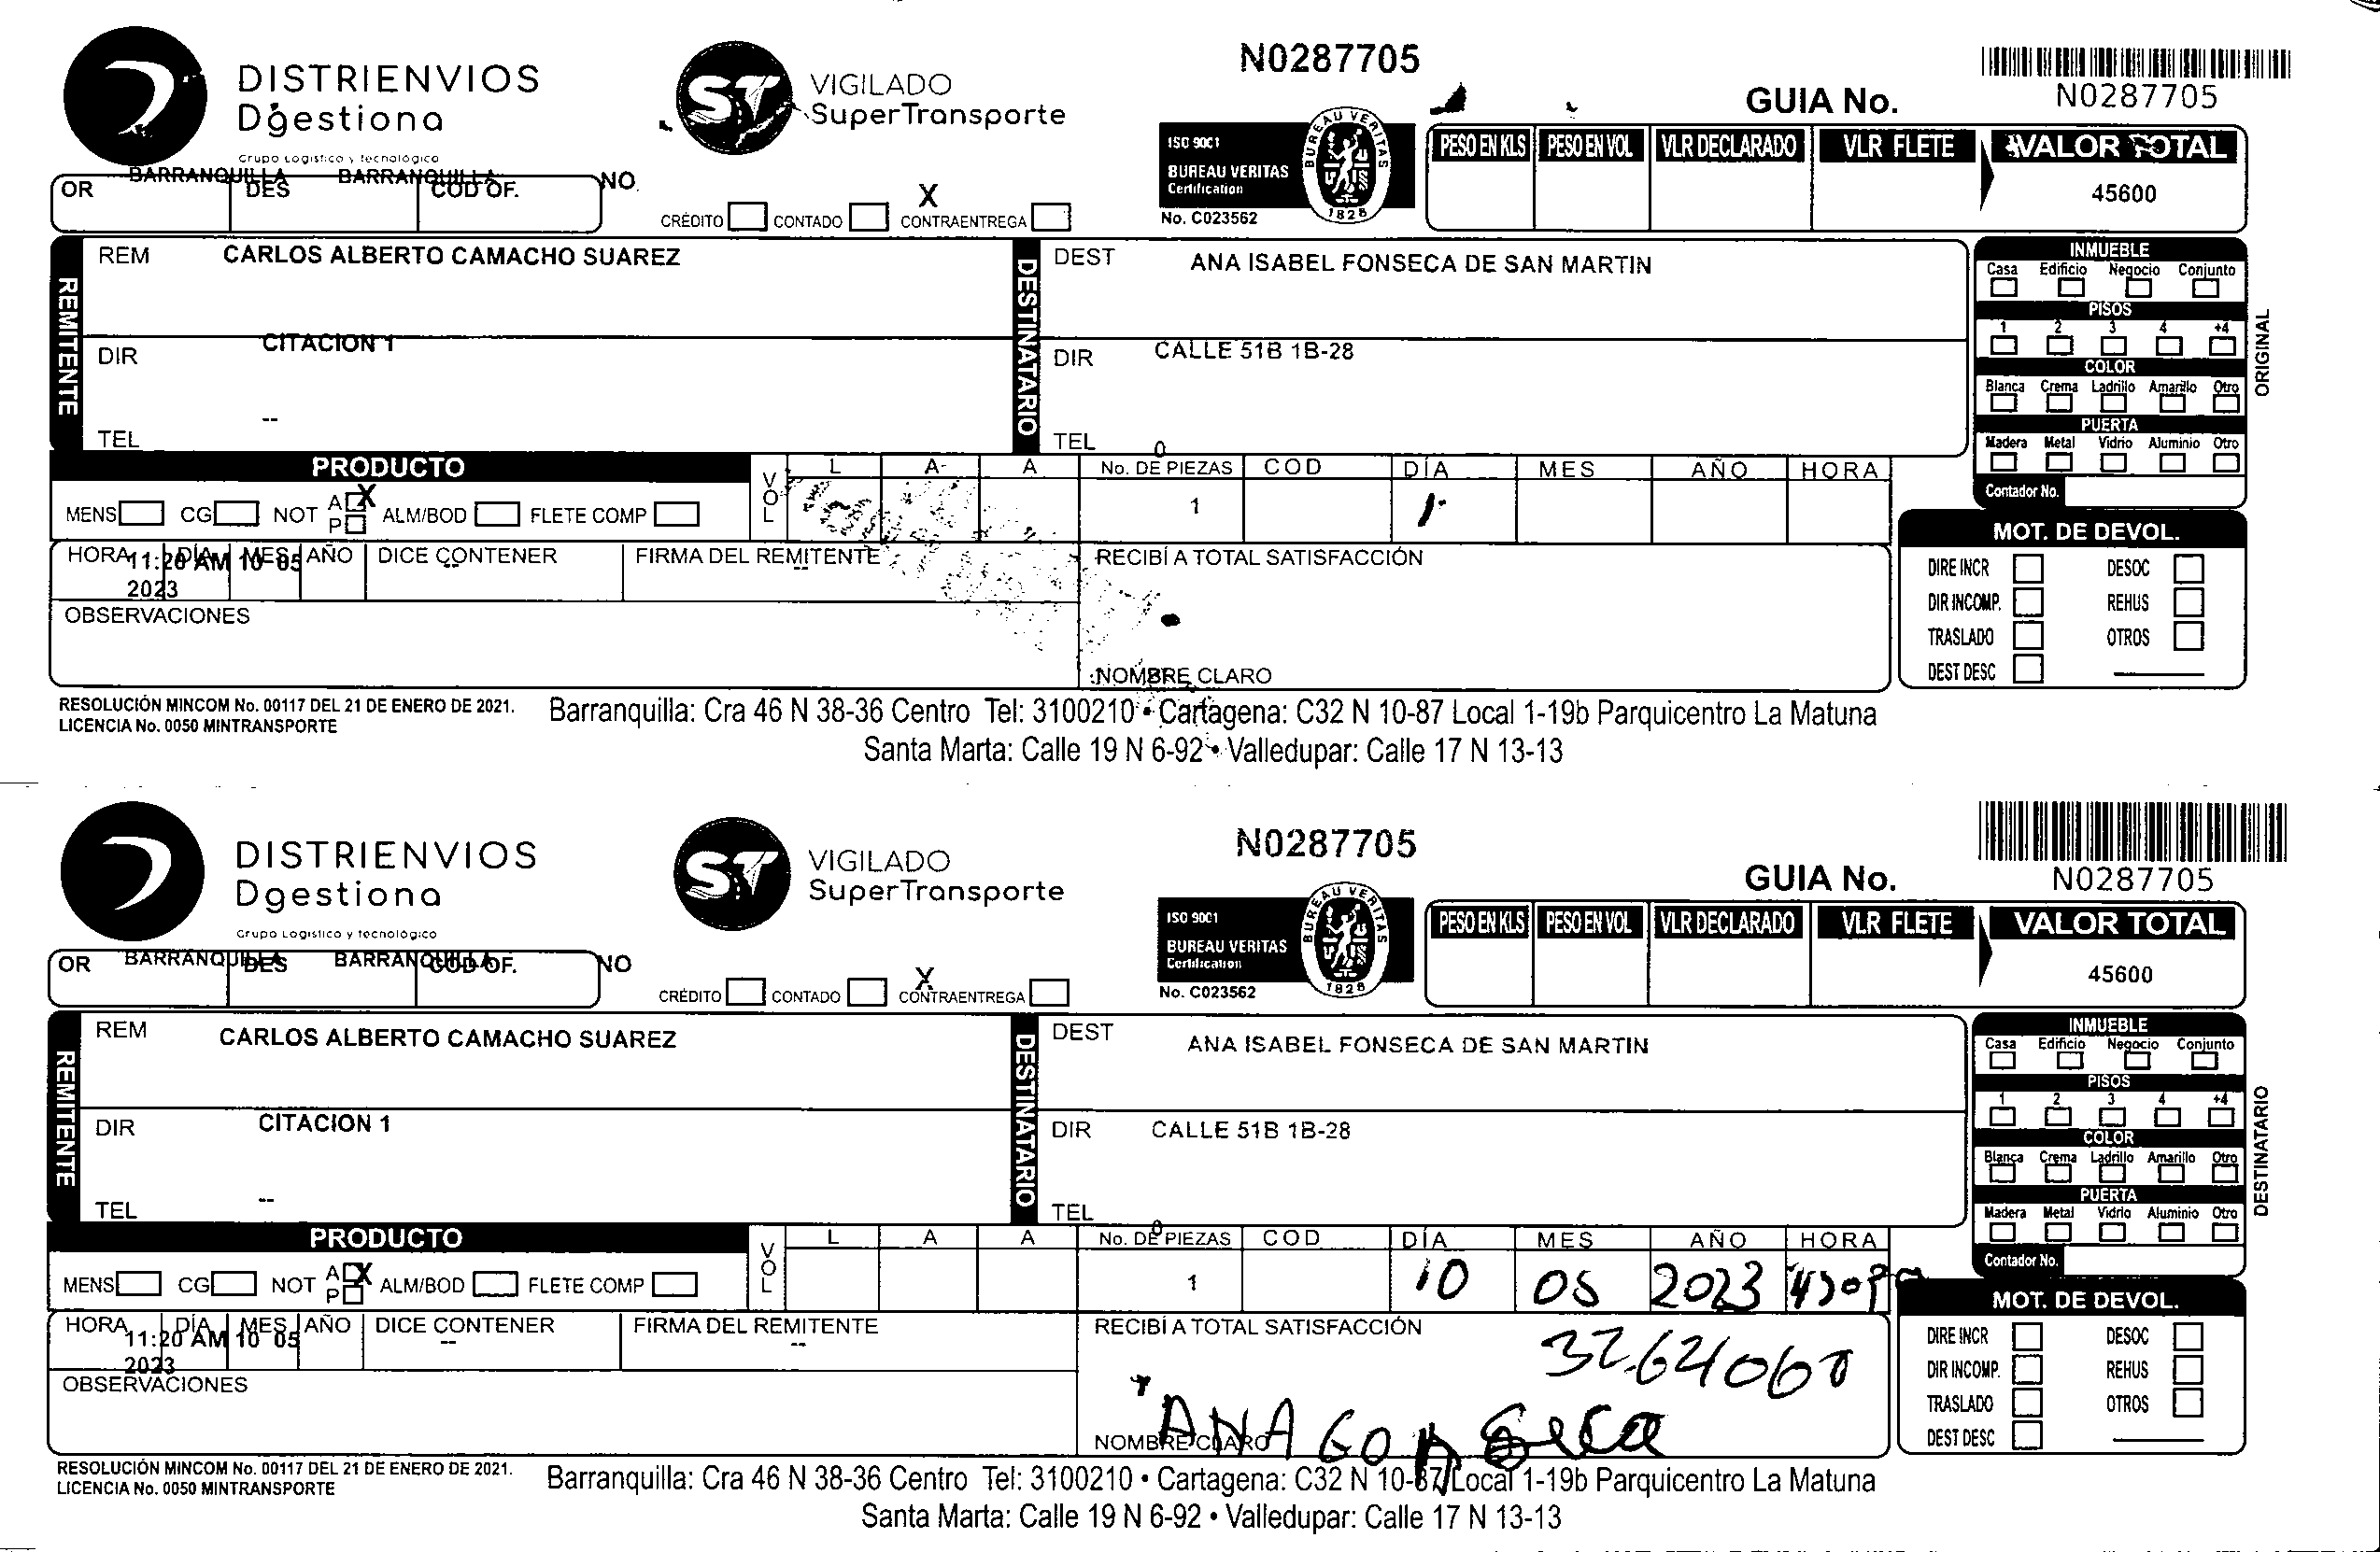 DISTRIENVIOS
Dgestiona
Grupo Logístico y tecnológico
VIGILADO
SuperTransporte
N0287705
ISO 9001
BUREAU VERITAS
Certification
No. C023562
BUREAU VERITAS
1828
GUIA No.
N0287705
PESO EN KLS PESO EN VOL VLR DECLARADO VLR FLETE VALOR TOTAL
45600
OR BARRANQUILLA DES BARRANQUILLA COD OF. NO.
CRÉDITO CONTADO X CONTRAENTREGA
REMITENTE
REM CARLOS ALBERTO CAMACHO SUAREZ
DIR CITACION 1
TEL --
DESTINATARIO
DEST ANA ISABEL FONSECA DE SAN MARTIN
DIR CALLE 51B 1B-28
TEL 0
INMUEBLE
Casa Edificio Negocio Conjunto
PISOS
1 2 3 4 +4
COLOR
Blanca Crema Ladrillo Amarillo Otro
PUERTA
Madera Metal Vidrio Aluminio Otro
Contador No.
ORIGINAL
PRODUCTO
MENS CG NOT A X P ALM/BOD FLETE COMP
VOL L A A
No. DE PIEZAS COD DÍA MES AÑO HORA
1
HORA DÍA MES AÑO DICE CONTENER FIRMA DEL REMITENTE
11:20 AM 10 05 -- --
2023
OBSERVACIONES
RECIBÍ A TOTAL SATISFACCIÓN
NOMBRE CLARO
MOT. DE DEVOL.
DIRE INCR DESOC
DIR INCOMP. REHUS
TRASLADO OTROS
DEST DESC
RESOLUCIÓN MINCOM No. 00117 DEL 21 DE ENERO DE 2021.
LICENCIA No. 0050 MINTRANSPORTE
Barranquilla: Cra 46 N 38-36 Centro Tel: 3100210 • Cartagena: C32 N 10-87 Local 1-19b Parquicentro La Matuna
Santa Marta: Calle 19 N 6-92 • Valledupar: Calle 17 N 13-13
DISTRIENVIOS
Dgestiona
Grupo Logístico y tecnológico
VIGILADO
SuperTransporte
N0287705
ISO 9001
BUREAU VERITAS
Certification
No. C023562
BUREAU VERITAS
1828
GUIA No.
N0287705
PESO EN KLS PESO EN VOL VLR DECLARADO VLR FLETE VALOR TOTAL
45600
OR BARRANQUILLA DES BARRANQUILLA COD OF. NO
CRÉDITO CONTADO X CONTRAENTREGA
REMITENTE
REM CARLOS ALBERTO CAMACHO SUAREZ
DIR CITACION 1
TEL --
DESTINATARIO
DEST ANA ISABEL FONSECA DE SAN MARTIN
DIR CALLE 51B 1B-28
TEL 0
INMUEBLE
Casa Edificio Negocio Conjunto
PISOS
1 2 3 4 +4
COLOR
Blanca Crema Ladrillo Amarillo Otro
PUERTA
Madera Metal Vidrio Aluminio Otro
Contador No.
DESTINATARIO
PRODUCTO
MENS CG NOT A X P ALM/BOD FLETE COMP
VOL L A A
No. DE PIEZAS COD DÍA MES AÑO HORA
1 10 05 2023
HORA DÍA MES AÑO DICE CONTENER FIRMA DEL REMITENTE
11:20 AM 10 05 -- --
2023
OBSERVACIONES
RECIBÍ A TOTAL SATISFACCIÓN
NOMBRE CLARO
ANA
MOT. DE DEVOL.
DIRE INCR DESOC
DIR INCOMP. REHUS
TRASLADO OTROS
DEST DESC
RESOLUCIÓN MINCOM No. 00117 DEL 21 DE ENERO DE 2021.
LICENCIA No. 0050 MINTRANSPORTE
Barranquilla: Cra 46 N 38-36 Centro Tel: 3100210 • Cartagena: C32 N 10-87 Local 1-19b Parquicentro La Matuna
Santa Marta: Calle 19 N 6-92 • Valledupar: Calle 17 N 13-13